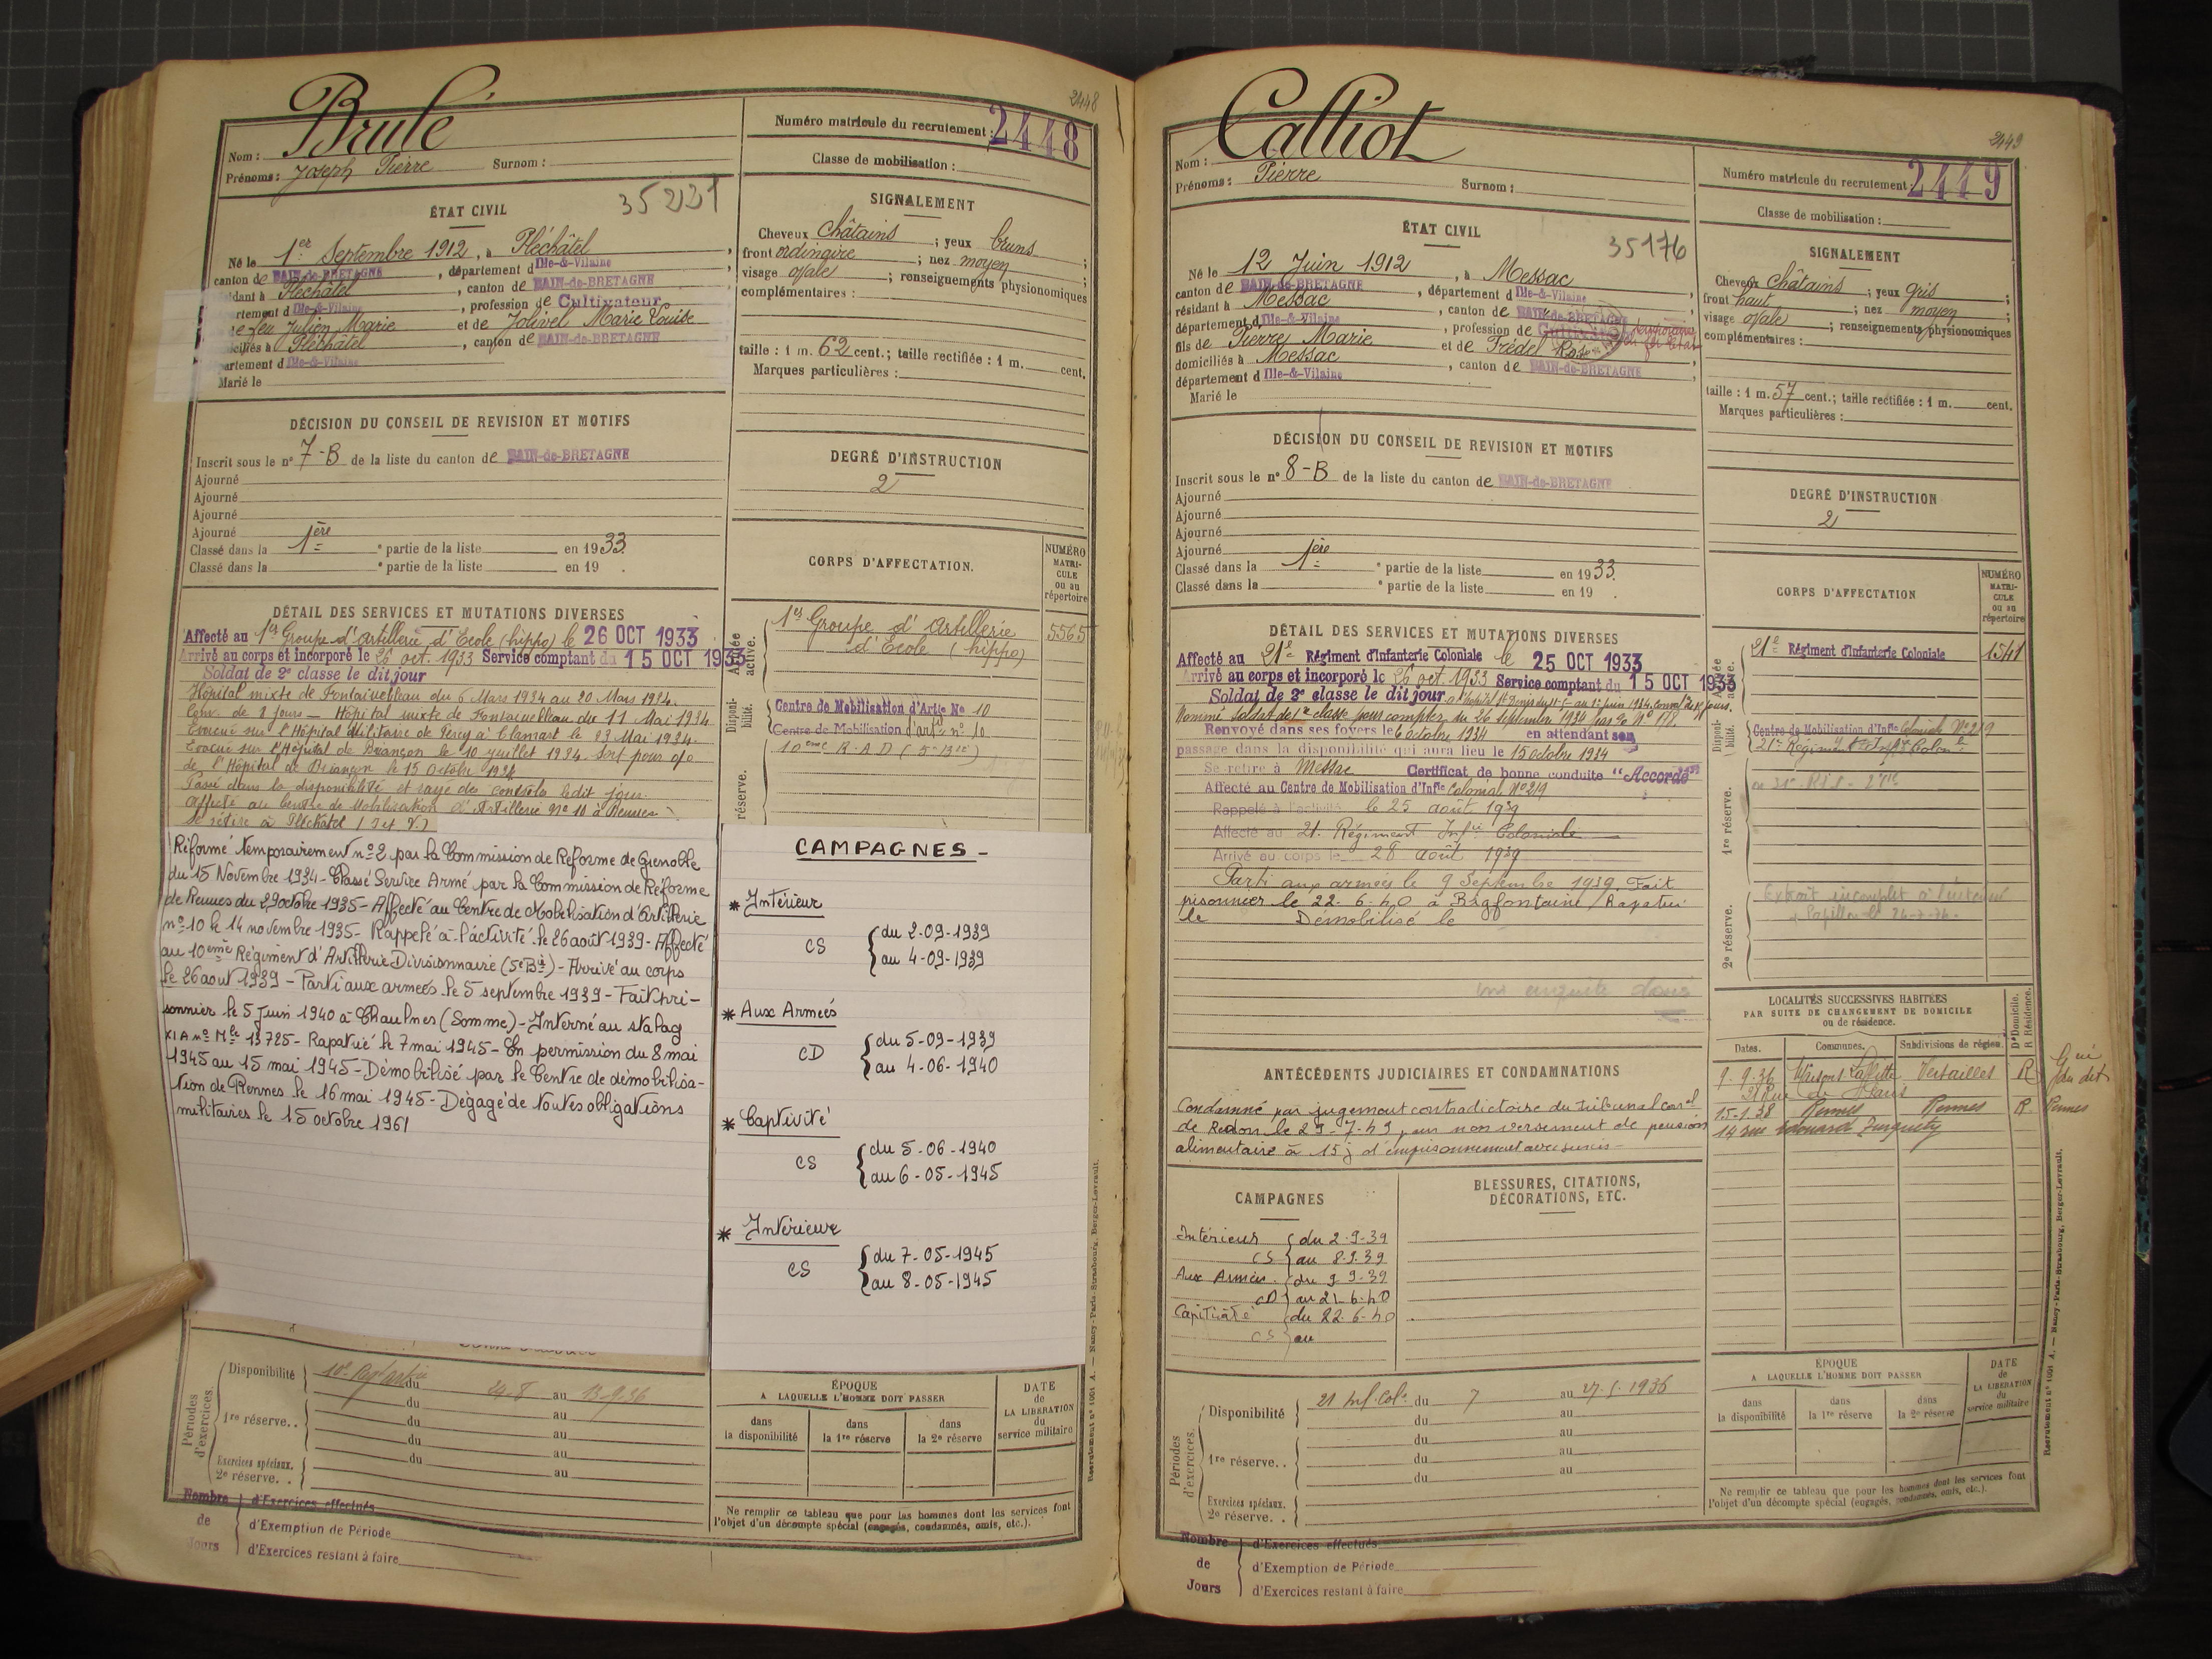 2448
Brulé
Nom :
Prénoms : Joseph Pierre Surnom :
Numéro matricule du recrutement : 2448
Classe de mobilisation :
ÉTAT CIVIL
35221
Né le 1er Septembre 1912, à Pléchâtel,
canton de BAIN-de-BRETAGNE, département d'Ille-&-Vilaine
résidant à Pléchâtel, canton de BAIN-de-BRETAGNE
département d'Ille-&-Vilaine, profession de Cultivateur
feu Julien Marie et de Jolivel Marie Louise
domiciliés à Pléchâtel, canton de BAIN-de-BRETAGNE
département d'Ille-&-Vilaine
Marié le
SIGNALEMENT
Cheveux Châtains ; yeux bruns ;
front ordinaire ; nez moyen ;
visage ovale ; renseignements physionomiques
complémentaires :
taille : 1 m. 62 cent.; taille rectifiée : 1 m. cent.
Marques particulières :
DÉCISION DU CONSEIL DE REVISION ET MOTIFS
Inscrit sous le n° 7-B de la liste du canton de BAIN-de-BRETAGNE
Ajourné
Ajourné
Ajourné
Ajourné
Classé dans la 1ère partie de la liste en 1933.
Classé dans la e partie de la liste en 19 .
DEGRÉ D'INSTRUCTION
2
CORPS D'AFFECTATION.
NUMÉRO
MATRI-
CULE
ou au
répertoire
Armée active.
1er Groupe d'Artillerie
d'Ecole (hippo)
5565
Disponibilité.
Centre de Mobilisation d'Artie No 10
Centre de Mobilisation d'artie n° 10
10ème R.A.D (5e Bie)
réserve.
DÉTAIL DES SERVICES ET MUTATIONS DIVERSES
Affecté au 1er Groupe d'Artillerie d'Ecole (hippo) le 26 OCT 1933
Arrivé au corps et incorporé le 26 oct. 1933 Service comptant du 15 OCT 1933
Soldat de 2e classe le dit jour
Hôpital mixte de Fontainebleau du 6 Mars 1934 au 20 Mars 1934.
Conv. de 8 jours — Hôpital mixte de Fontainebleau du 11 Mai 1934
Evacué sur l'Hôpital Militaire de Percy à Clamart le 23 Mai 1934.
Evacué sur l'Hôpital de Briançon le 10 juillet 1934. Sort pour
de l'Hôpital de Briançon le 15 Octobre 1934
Passé dans la disponibilité et rayé des contrôles ledit jour.
Affecté au Centre de Mobilisation d'Artillerie N° 10 à Rennes
Se retire à Pléchatel (I et V.)
Réformé temporairement n°2 par la Commission de Réforme de Grenoble
du 15 Novembre 1934 - Classé Service Armé par la Commission de Réforme
de Rennes du 29 octobre 1935 - Affecté au Centre de Mobilisation d'Artillerie
n°10 le 14 novembre 1935 - Rappelé à l'activité le 26 août 1939 - Affecté
au 10ème Régiment d'Artillerie Divisionnaire (5e Bie) - Arrivé au corps
le 26 aout 1939 - Parti aux armées le 5 septembre 1939 - Fait pri-
sonnier le 5 Juin 1940 à Chaulnes (Somme) - Interné au stalag
XI A n° Mle 13725 - Rapatrié le 7 mai 1945 - En permission du 8 mai
1945 au 15 mai 1945 - Démobilisé par le Centre de démobilisa-
tion de Rennes le 16 mai 1945 - Dégagé de toutes obligations
militaires le 15 octobre 1961
CAMPAGNES -
* Intérieur
CS { du 2-09-1939
au 4-09-1939
* Aux Armées
CD { du 5-09-1939
au 4-06-1940
* Captivité
CS { du 5-06-1940
au 6-05-1945
* Intérieur
CS { du 7-05-1945
au 8-05-1945
Périodes d'exercices.
Disponibilité du 24-8 au 13-9-36
du au
1re réserve. . du au
du au
du au
Exercices spéciaux.
2e réserve. . du au
ÉPOQUE
A LAQUELLE L'HOMME DOIT PASSER
dans la disponibilité
dans la 1re réserve
dans la 2e réserve
DATE de LA LIBERATION du service militaire
Ne remplir ce tableau que pour les hommes dont les services font
l'objet d'un décompte spécial (engagés, condamnés, omis, etc.).
Nombre de Jours
d'Exercices effectués
d'Exemption de Période
d'Exercices restant à faire
Recrutement n° 1001 A. — Nancy-Paris-Strasbourg, Berger-Levrault.
2449
Calliot
Nom :
Prénoms : Pierre Surnom :
Numéro matricule du recrutement : 2449
Classe de mobilisation :
ÉTAT CIVIL
35176
Né le 12 Juin 1912, à Messac,
canton de BAIN-de-BRETAGNE, département d'Ille-&-Vilaine
résidant à Messac, canton de BAIN-de-BRETAGNE
département d'Ille-&-Vilaine, profession de Cultivateur
fils de Pierre Marie et de Frédel Rose
domiciliés à Messac, canton de BAIN-de-BRETAGNE
département d'Ille-&-Vilaine
Marié le
SIGNALEMENT
Cheveux Châtains ; yeux gris ;
front haut ; nez moyen ;
visage ovale ; renseignements physionomiques
complémentaires :
taille : 1 m. 57 cent.; taille rectifiée : 1 m. cent.
Marques particulières :
DÉCISION DU CONSEIL DE REVISION ET MOTIFS
Inscrit sous le n° 8-B de la liste du canton de BAIN-de-BRETAGNE
Ajourné
Ajourné
Ajourné
Ajourné
Classé dans la 1ère partie de la liste en 1933.
Classé dans la e partie de la liste en 19 .
DEGRÉ D'INSTRUCTION
2
CORPS D'AFFECTATION
NUMÉRO
MATRI-
CULE
ou au
répertoire
Armée active.
21e Régiment d'Infanterie Coloniale
1541
Disponibilité.
Centre de Mobilisation d'Infie Coloniale N°219
21e Régiment d'Infie Colonle
1re réserve.
2e réserve.
Extrait incomplet à l'intéressé
DÉTAIL DES SERVICES ET MUTATIONS DIVERSES
Affecté au 21e Régiment d'Infanterie Coloniale le 25 OCT 1933
Arrivé au corps et incorporé le 26 oct. 1933 Service comptant du 15 OCT 1933
Soldat de 2e classe le dit jour
Nommé Soldat de 1re classe pour compter du 26 septembre 1934 par N° 118.
Renvoyé dans ses foyers le 6 octobre 1934 en attendant son
passage dans la disponibilité qui aura lieu le 15 octobre 1934
Se retire à Messac Certificat de bonne conduite "Accordé"
Affecté au Centre de Mobilisation d'Infie Colonial N°219
Rappelé à l'activité le 25 août 1939
Affecté au 21. Régiment Infie Coloniale
Arrivé au corps le 28 août 1939
Parti aux armées le 9 Septembre 1939. Fait
prisonnier le 22.6.40 à Bagfontaine Rapatrié
le Démobilisé le
LOCALITÉS SUCCESSIVES HABITÉES
PAR SUITE DE CHANGEMENT DE DOMICILE
ou de résidence.
Dates. Communes. Subdivisions de région. D Domicile. R Résidence.
9.9.36 Maisons Laffitte Versailles R
21 Rue de Paris
15-1.38 Rennes Rennes R. Rennes
14 rue Edouard Turquety
ANTÉCÉDENTS JUDICIAIRES ET CONDAMNATIONS
Condamné par jugement contradictoire du tribunal corel
de Redon le 29-7-49, pour non versement de pension
alimentaire à 15 j d'emprisonnement avec sursis -
CAMPAGNES
Intérieur { du 2-9-39
CS au 8.9.39
Aux Armées { du 9 9-39
CD au 21.6-40
Captivité { du 22.6-40
CS au
BLESSURES, CITATIONS,
DÉCORATIONS, ETC.
Périodes d'exercices.
Disponibilité 21 Inf. Cole du 7 au 27.1.1936
du au
1re réserve. . du au
du au
du au
Exercices spéciaux.
2e réserve. .
ÉPOQUE
A LAQUELLE L'HOMME DOIT PASSER
dans la disponibilité
dans la 1re réserve
dans la 2e réserve
DATE de LA LIBERATION du service militaire
Ne remplir ce tableau que pour les hommes dont les services font
l'objet d'un décompte spécial (engagés, condamnés, omis, etc.).
Nombre de Jours
d'Exercices effectués
d'Exemption de Période
d'Exercices restant à faire
Recrutement n° 1001 A. — Nancy-Paris-Strasbourg, Berger-Levrault.